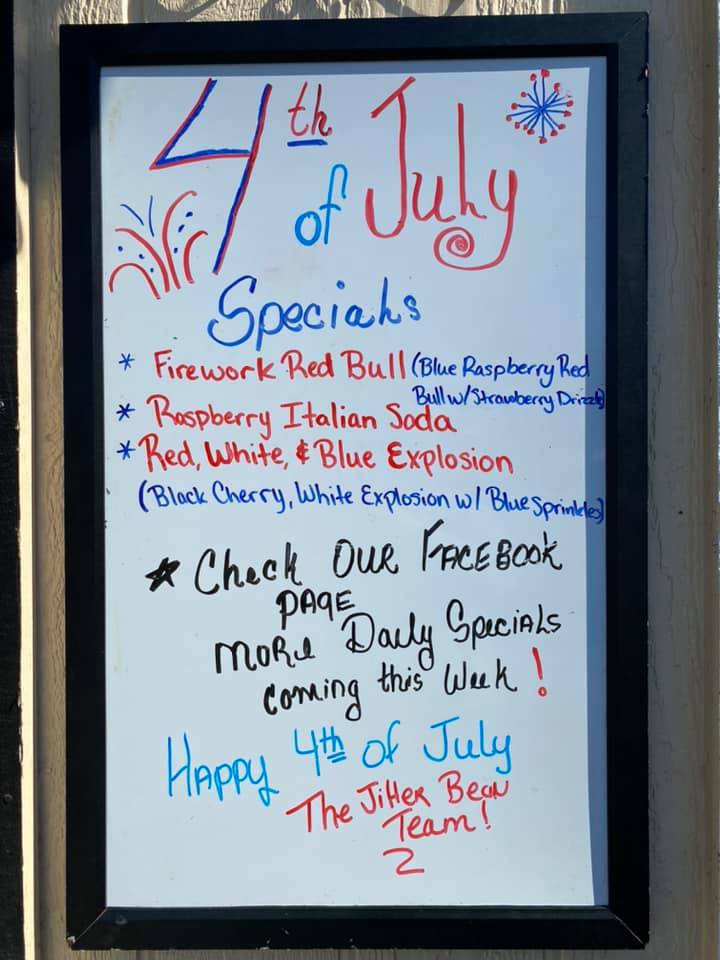 4th of July
Specials
* Firework Red Bull (Blue Raspberry Red
Bull w/ Strawberry Drizzle)
* Raspberry Italian Soda
* Red, White, & Blue Explosion
(Black Cherry, White Explosion w/ Blue Sprinkles)
* Check OUR FACEBOOK
PAGE
MORe Daily SpeciALs
coming this Week!
HAppy 4th of July
The JitteR Bean
Team!
2